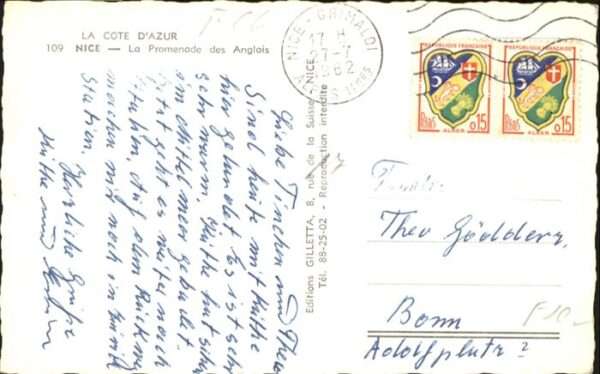 LA COTE D'AZUR
109 NICE — La Promenade des Anglais
NICE - GRIMALDI
17 H
27-7
1962
ALPES MMES
REPUBLIQUE FRANÇAISE
Postes
0,15
ALGER
REPUBLIQUE FRANÇAISE
Postes
0,15
ALGER
Editions GILLETTA, 8, rue de la Suisse, NICE
Tél. 88-25-02 - Reproduction interdite
Liebe Tinchen und Theo
Sind heute mit Käthe
hier gelandet. Es ist sehr
sehr warm. Käthe hat schon
im Mittelmeer gebadet.
geht es weiter nach
Italien. Auf dem Rückweg
machen wir noch in
Station. Herzliche Grüße
Käthe und
Familie
Theo Gödderz
Bonn
Adolfplatz 2